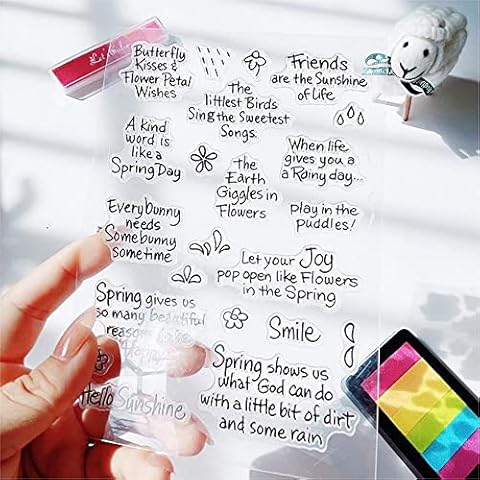 Butterfly
Kisses &
Flower Petal
Wishes
Friends
are the Sunshine
of Life
The
littlest Birds
Sing the Sweetest
Songs.
A kind
word is
like a
Spring Day
When life
gives you a
a Rainy day...
The
Earth
Giggles in
Flowers
play in the
puddles!
Everybunny
needs
Somebunny
sometime
Let your Joy
pop open like Flowers
in the Spring
Spring gives us
so many beautiful
reasons to be
Happy
Smile
Spring shows us
what God can do
with a little bit of dirt
and some rain
Hello Sunshine